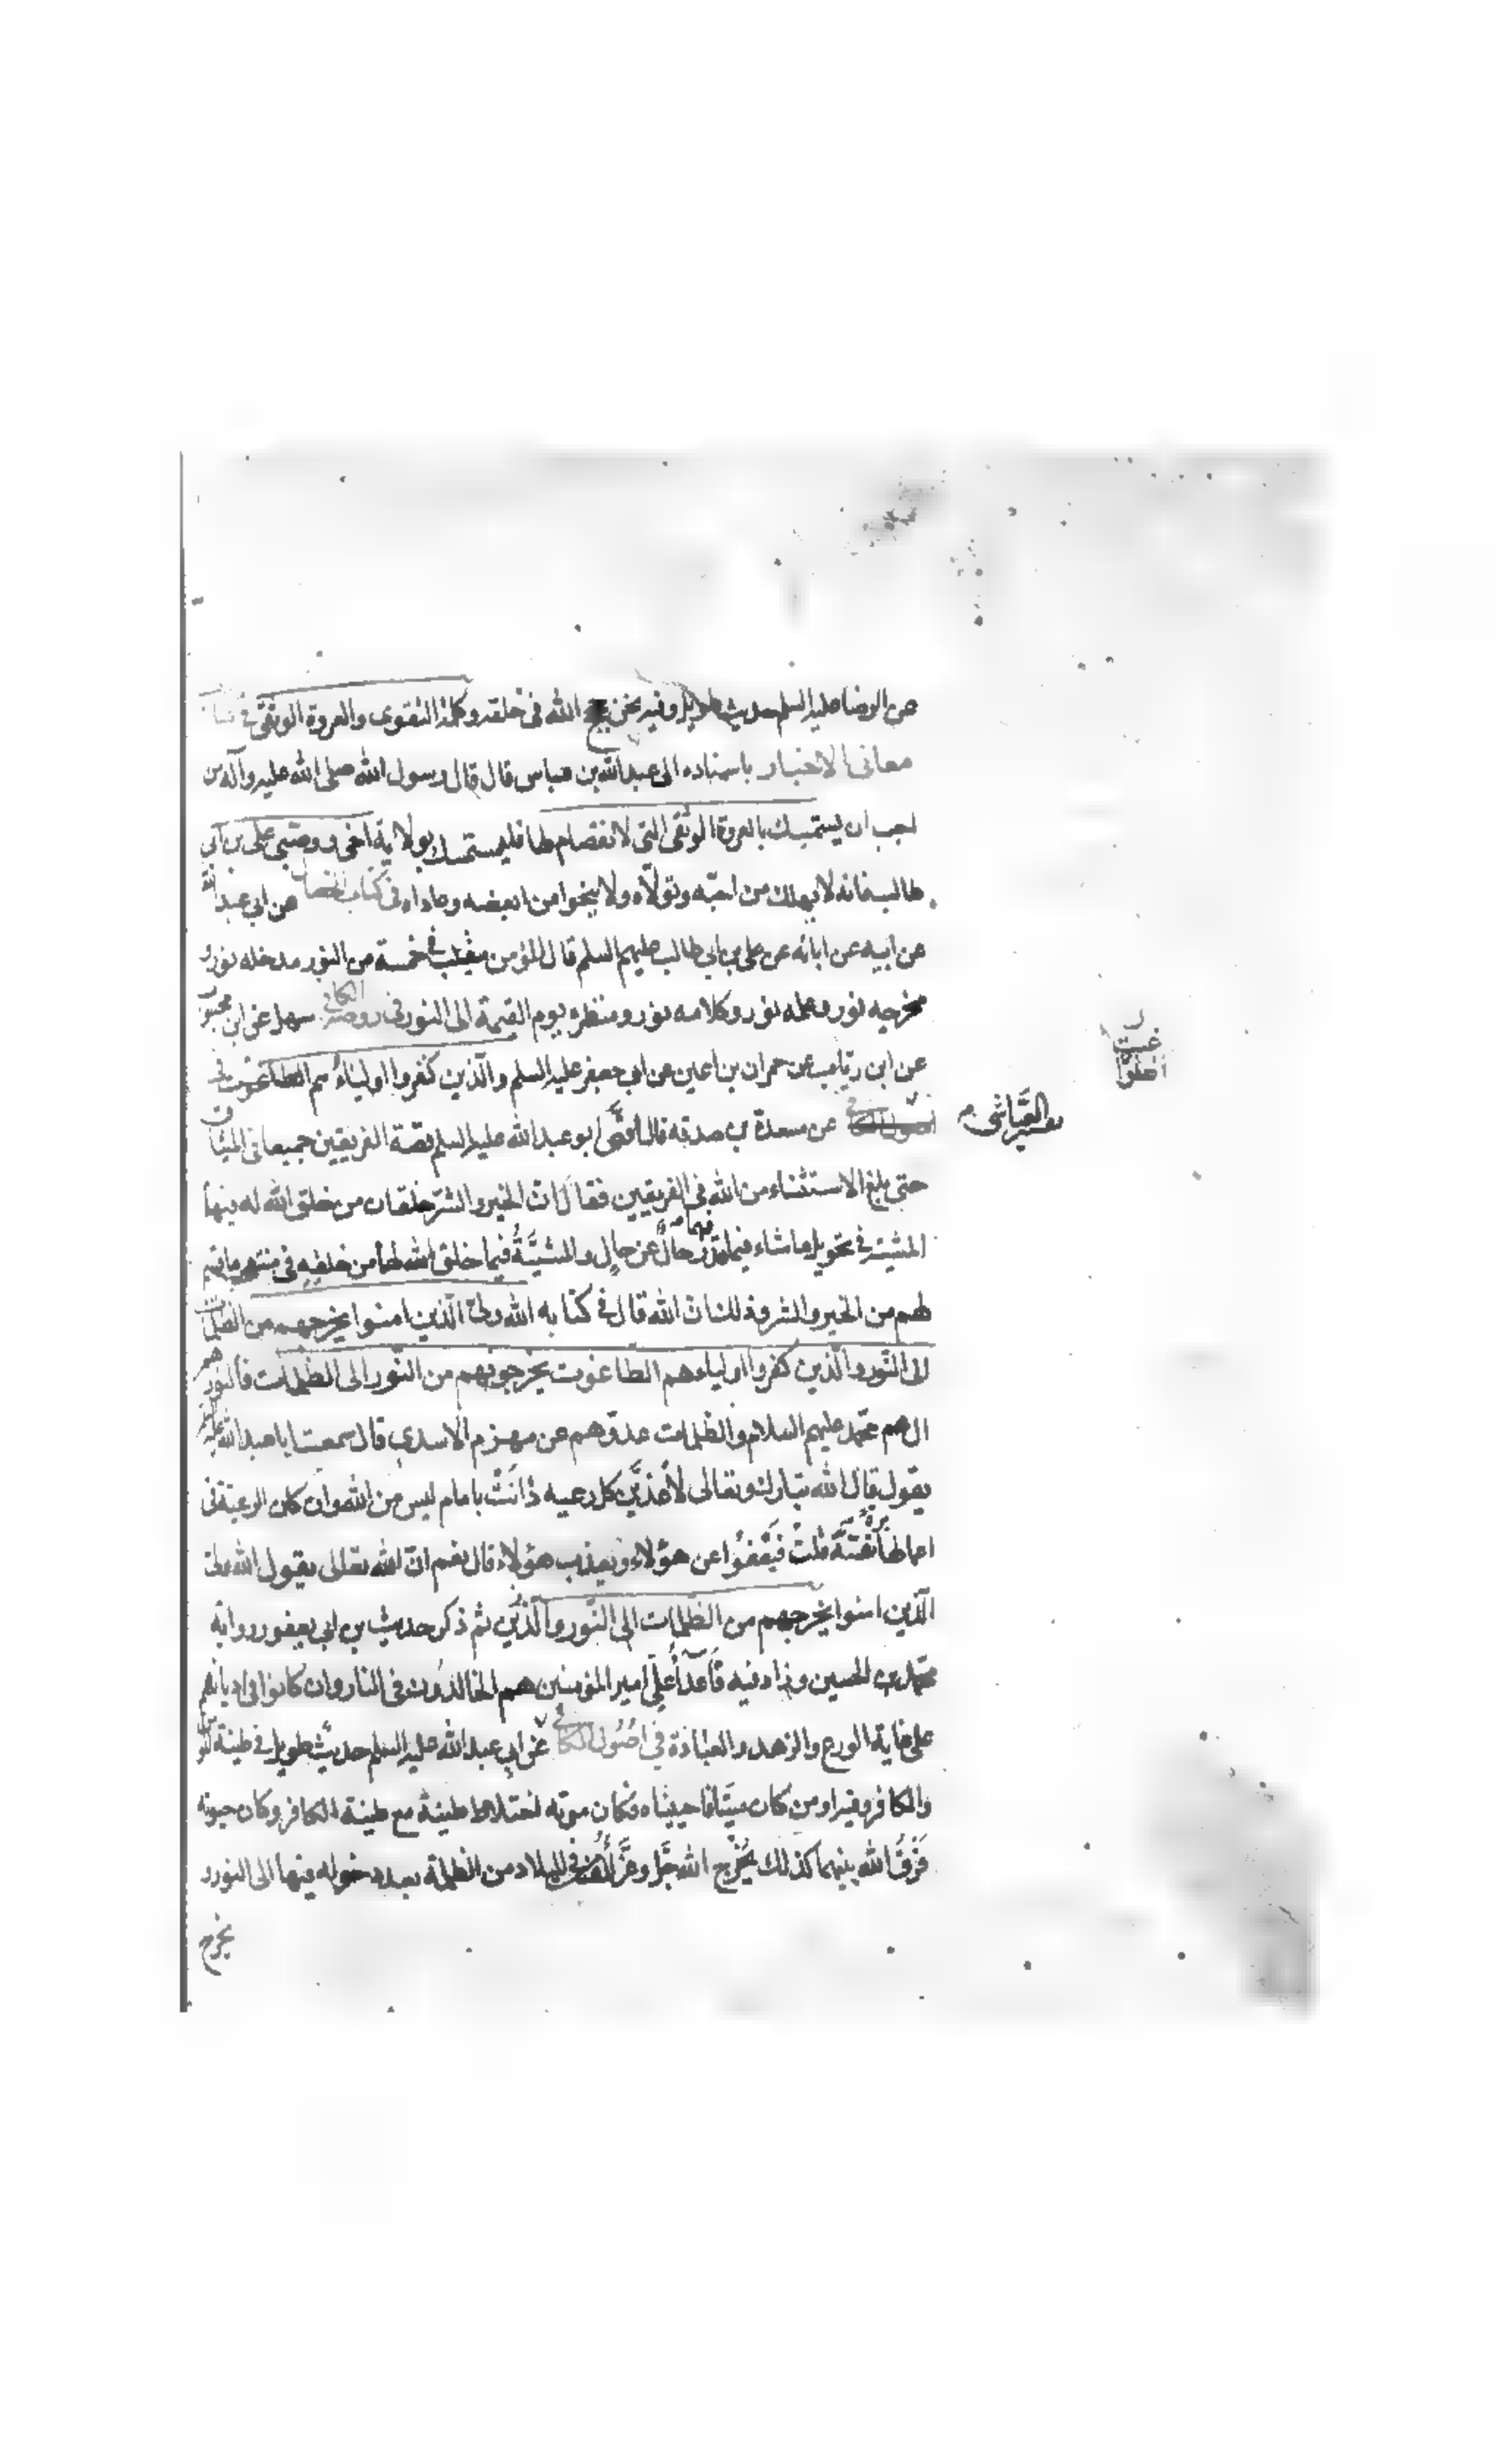 عن الرضا عليه السلم حديث طويل وفيه نحن حجج الله فى خلقه وكلمة التقوى والعروة الوثقى فى كتاب
معانى الاخبار باسناده الى عبد الله بن عباس قال قال رسول الله صلى الله عليه وآله من
احب ان يستمسك بالعروة الوثقى التى لا انفصام لها فليستمسك بولاية اخى ووصيى على بن ابى
طالب فانه لا يهلك من احبّه وتولّاه ولا ينجوا من ابغضه وعاداه فى كتاب الخصال عن ابى عبد الله
عن ابيه عن ابائه عن على بن ابى طالب عليهم السلم قال المؤمن يتقلب فى خمسة من النور مدخله نور و
مخرجه نور وعلمه نور وكلامه نور ومنظره يوم القيمة الى النور فى روضة الكافى سهل عن ابن محبوب
عن ابن رئاب عن حمران بن اعين عن ابى جعفر عليه السلم والّذين كفروا اولياءهم الطاغوت فى
اصول الكافى عن مسعدة بن صدقه قال قصّ ابو عبد الله عليه السلم قصة الفريقين جميعا فى الميثاق
تفسير العيّاشى
حتى بلغ الاستثناء من الله فى الفريقين فقال انّ الخير والشرّ خلقان من خلق الله له فيهما
المشيّة فى تحويل ما شاء فيما قدّر فيهما حالٌ عن حالٍ والمشيّةُ فيما خلق الله لها من خلقه فى منتهى ما قسم
لهم من الخير والشر وذلك ان الله قال فى كتابه الله ولىّ الّذين امنوا يخرجهم من الظلمات
الى النّور والّذين كفروا اولياءهم الطاغوت يخرجونهم من النّور الى الظلمات فالنور هم
ال محمد عليهم السلام والظلمات عدوّهم عن مهزم الاسدى قال سمعت ابا عبد الله عليه
يقول قال الله تبارك وتعالى لأعذّبنّ كل رعيه دانَتْ بامام ليس من الله وان كان الرعية فى
اعمالها برةً تقيّةً قلت فيعفوا عن هؤلاء ويعذب هؤلاء قال نعم انّ الله تعالى يقول الله ولى
الّذين امنوا يخرجهم من الظلمات الى النّور والّذين ثم ذكر حديث بن ابى يعفور رواية
محمد بن الحسين وزاد فيه فأعداء علىّ امير المؤمنين هم الخالدون فى النار وان كانوا فى اديانهم
على غاية الورع والزهد والعبادة فى اصُول الكافى عن ابى عبد الله عليه السلم حديث طويل فى طينة المؤ
والكافر وفيه اومن كان ميّتا فاحييناه فكان موته اختلاط طينته مع طينة الكافر وكان حيوته
فَرَّقَ الله بينهما كذلك يُخْرِج الله جلّ وعزّ المؤمن فى الميلاد من الظلمة بعد دخوله فيها الى النور و
يخرج